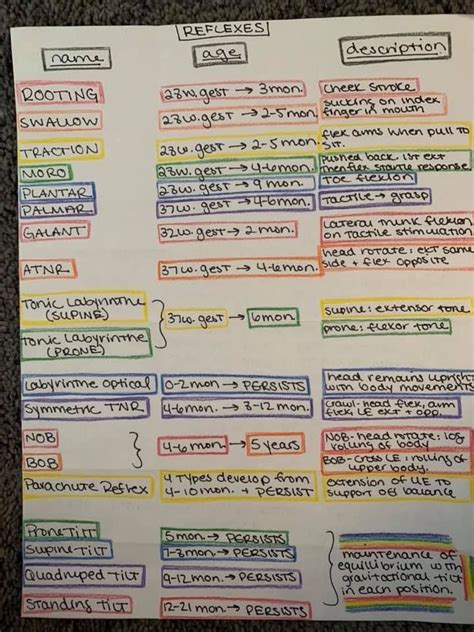 REFLEXES
name age description
ROOTING 28w.gest → 3mon. cheek stroke
SWALLOW 28w.gest → 2-5mon. sucking on index
finger in mouth
TRACTION 28w.gest → 2-5mon. flex arms when pull to
sit.
MORO 28w.gest → 4-6mon. pushed back. 1st ext
then flex. startle response
PLANTAR 28w.gest → 9 mon. Toe flexion
PALMAR 37w.gest → 4-6mon. Tactile → grasp
GALANT 32w.gest → 2 mon. Lateral trunk flexion
on tactile stimulation
ATNR 37w.gest → 4-6mon. head rotate: ext same
side + flex opposite
Tonic Labyrinthe
(SUPINE) 37w.gest → 6mon supine: extensor tone
Tonic Labyrinthe prone: flexor tone
(PRONE)
Labyrinthe Optical 0-2mon → PERSISTS head remain upright
with body movements
Symmetric TNR 4-6mon. → 8-12 mon. crawl-head flex, arm
flex, LE ext + opp.
NOB 4-6mon. → 5 years NOB-head rotate: log
rolling of body
BOB BOB-cross LE: rolling of
upper body.
Parachute Reflex 4 Types develop from extension of UE to
4-10mon. + PERSIST support OFF balance
Prone Tilt 5mon. → PERSISTS
Supine Tilt 7-8mon → PERSISTS maintenance of
equilibrium with
Quadruped Tilt 9-12mon. → PERSISTS gravitational tilt
in each position.
Standing Tilt 12-21 mon. → PERSISTS